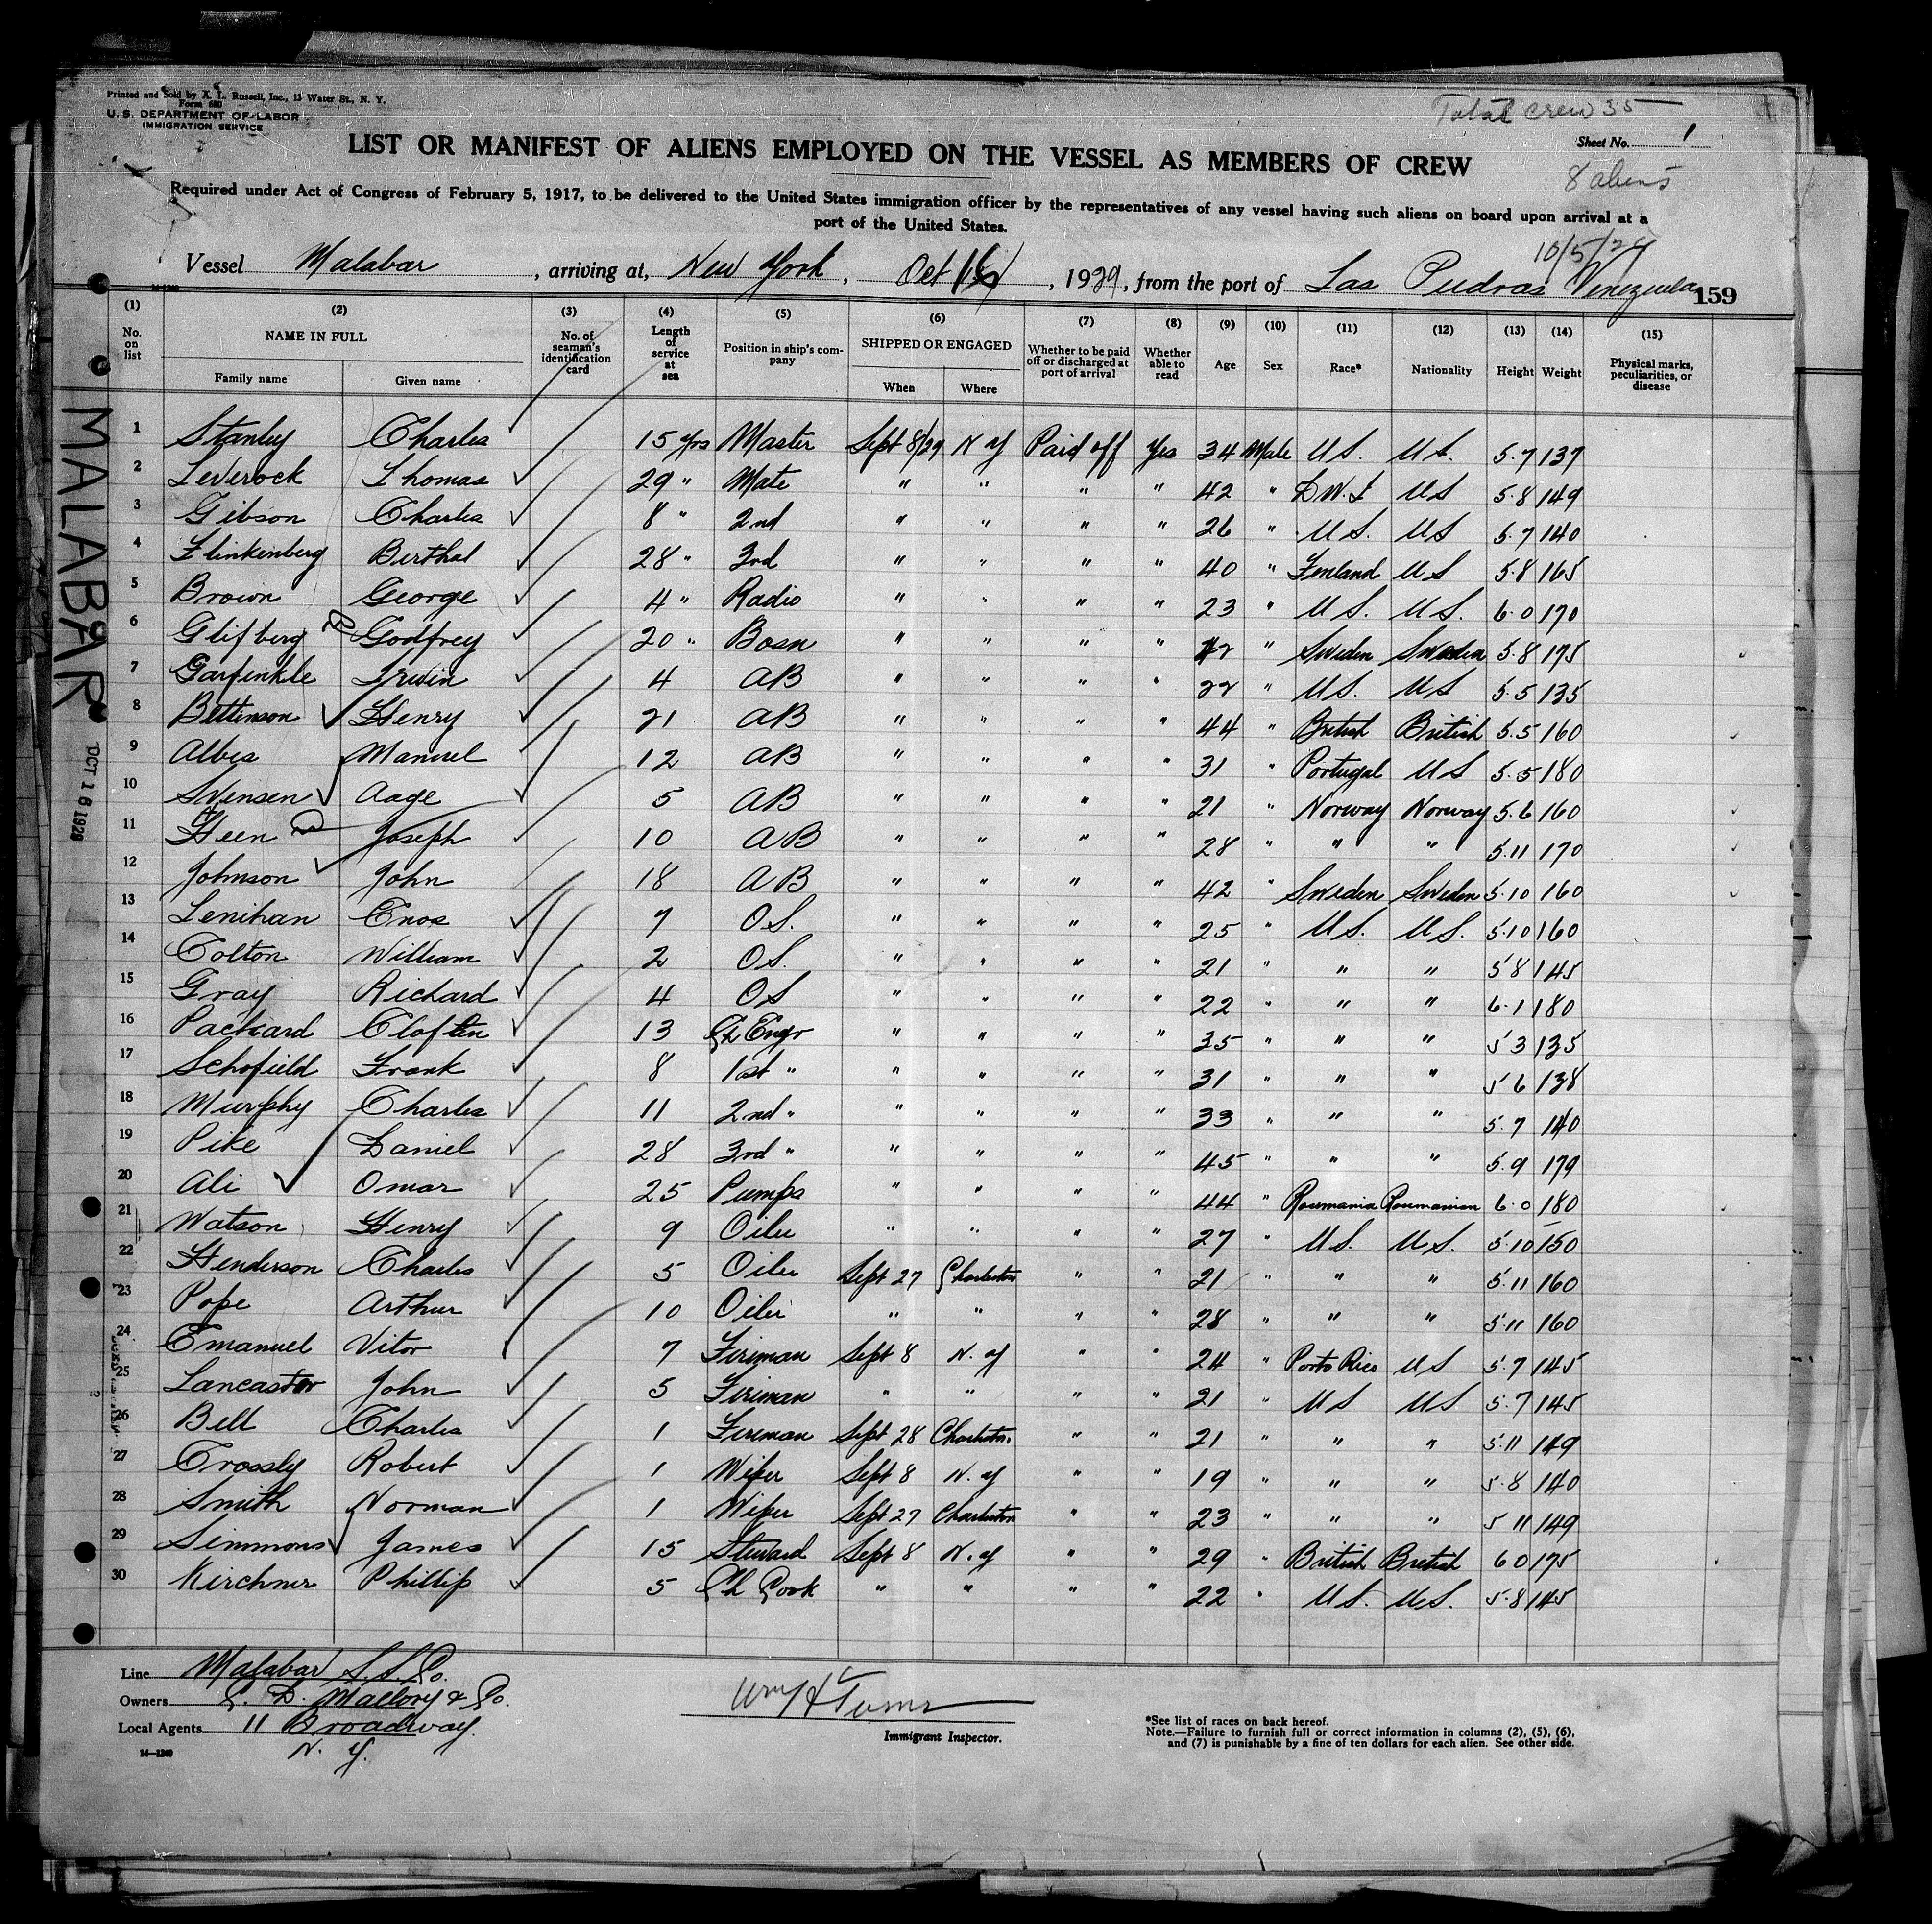 Printed and Sold by X. L. Russell, Inc., 13 Water St., N. Y.
Form 680
U. S. DEPARTMENT OF LABOR
IMMIGRATION SERVICE
Total crew 35
Sheet No. 1
LIST OR MANIFEST OF ALIENS EMPLOYED ON THE VESSEL AS MEMBERS OF CREW
8 aliens
Required under Act of Congress of February 5, 1917, to be delivered to the United States immigration officer by the representatives of any vessel having such aliens on board upon arrival at a
port of the United States.
10/5/29
Vessel Malabar, arriving at, New York, Oct 16, 1929, from the port of Las Piedras Venezuela 159
(1) (2) (3) (4) (5) (6) (7) (8) (9) (10) (11) (12) (13) (14) (15)
No. on list NAME IN FULL Family name Given name No. of seaman's identification card Length of service at sea Position in ship's company SHIPPED OR ENGAGED When Where Whether to be paid off or discharged at port of arrival Whether able to read Age Sex Race* Nationality Height Weight Physical marks, peculiarities, or disease
1 Stanley Charles 15 yrs Master Sept 8/29 N Y Paid off Yes 34 Male U S. U S. 5.7 137
2 Leverock Thomas 29 " Mate " " " " 42 " D.W.I U S 5.8 149
3 Gibson Charles 8 " 2nd " " " " 26 " U S. U S 5.7 140
4 Flinkenberg Berthal 28 " 3rd " " " " 40 " Finland U S 5.8 165
5 Brown George 4 " Radio " " " " 23 " U S. U S. 6.0 170
6 Glifberg Godfrey 20 " Bosn " " " " 42 " Sweden Sweden 5.8 175
7 Garfinkle Irwin 4 AB " " " " 22 " U S. U S 5.5 135
8 Bettinson Henry 21 AB " " " " 44 " British British 5.5 160
9 Albes Manuel 12 AB " " " " 31 " Portugal U S 5.5 180
10 Svensen Aage 5 AB " " " " 21 " Norway Norway 5.6 160
11 Steen Joseph 10 AB " " " " 28 " " " 5.11 170
12 Johnson John 18 AB " " " " 42 " Sweden Sweden 5.10 160
13 Lenihan Enos 7 O S. " " " " 25 " U S. U S. 5.10 160
14 Colton William 2 O S. " " " " 21 " " " 5 8 145
15 Gray Richard 4 O S " " " " 22 " " " 6.1 180
16 Packard Cloften 13 Ch Engr " " " " 35 " " " 5 3 135
17 Schofield Frank 8 1st " " " " " 31 " " " 5 6 138
18 Murphy Charles 11 2nd " " " " " 33 " " " 5.7 140
19 Pike Daniel 28 3rd " " " " " 45 " " " 5.9 179
20 Ali Omar 25 Pumps " " " " 44 " Roumania Roumanian 6.0 180
21 Watson Henry 9 Oiler " " " " 27 " U S. U S. 5.10 150
22 Henderson Charles 5 Oiler Sept 27 Charleston " " 21 " " " 5.11 160
23 Pope Arthur 10 Oiler " " " " 28 " " " 5.11 160
24 Emanuel Vitor 7 Fireman Sept 8 N. Y " " 24 " Porto Rico U S 5.7 145
25 Lancaster John 5 Fireman " " " " 21 " U S U S 5.7 145
26 Bell Charles 1 Fireman Sept 28 Charleston " " 21 " " " 5.11 149
27 Crossly Robert 1 Wiper Sept 8 N. Y " " 19 " " " 5.8 140
28 Smith Norman 1 Wiper Sept 27 Charleston " " 23 " " " 5 11 149
29 Simmons James 15 Steward Sept 8 N. Y " " 29 " British British 6 0 175
30 Kirchner Phillip 5 Ch Cook " " " " 22 " U S. U S. 5.8 145
MALABAR
OCT 16 1929
Line Malabar S. S. Co.
Owners C. D. Mallory & Co.
Local Agents 11 Broadway.
N. Y.
14—1240
Immigrant Inspector.
*See list of races on back hereof.
Note.—Failure to furnish full or correct information in columns (2), (5), (6),
and (7) is punishable by a fine of ten dollars for each alien. See other side.